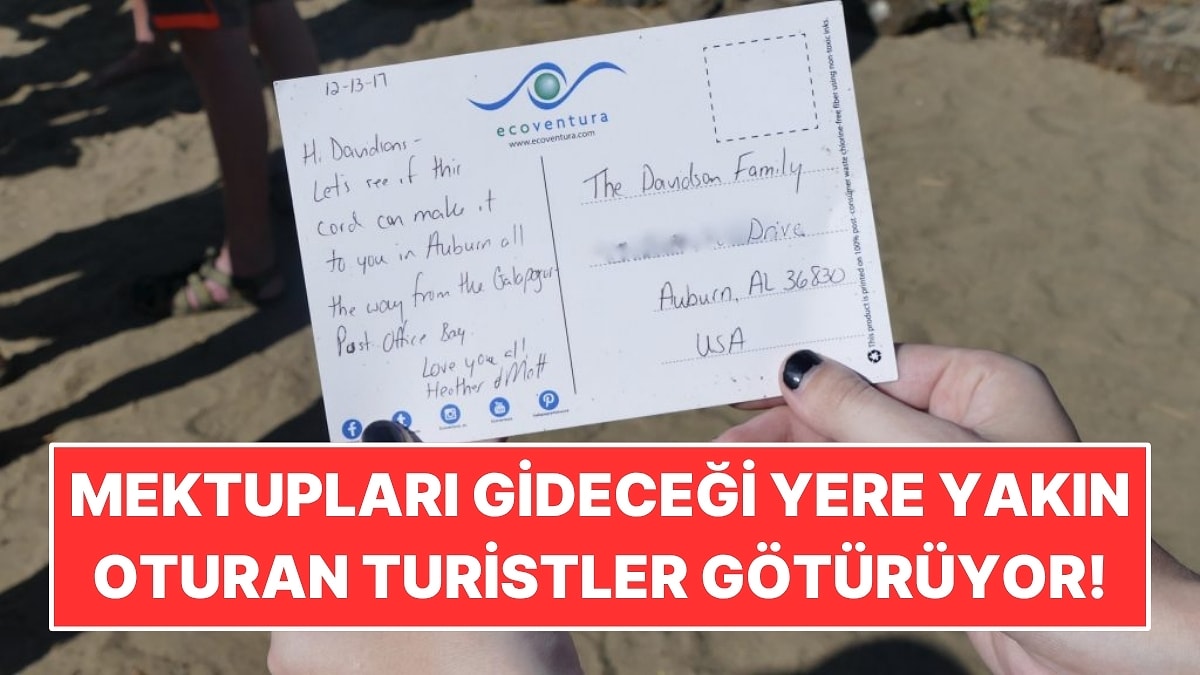 12-13-17
ecoventura
www.ecoventura.com
Hi Davidsons -
Let's see if this
card can make it
to you in Auburn all
the way from the Galapagos
Post Office Bay.
Love you all!
Heather & Mott
The Davidson Family
Drive
Auburn, AL 36830
USA
This product is printed on 100% post-consumer waste chlorine-free fiber using non-toxic inks.
MEKTUPLARI GİDECEĞİ YERE YAKIN
OTURAN TURİSTLER GÖTÜRÜYOR!